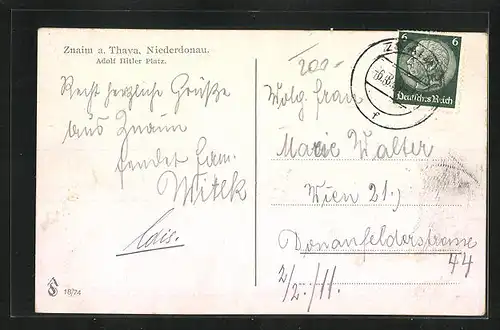 Znaim a. Thaya, Niederdonau.
Adolf Hitler Platz.
Recht herzliche Grüße
aus Znaim
sendet Fam.
Witek
Edis.
18/74
6 6
Deutsches Reich
Wolg. Frau
Marie Walter
Wien 21.)
Donaufelderstrasse
44
2/2./11.